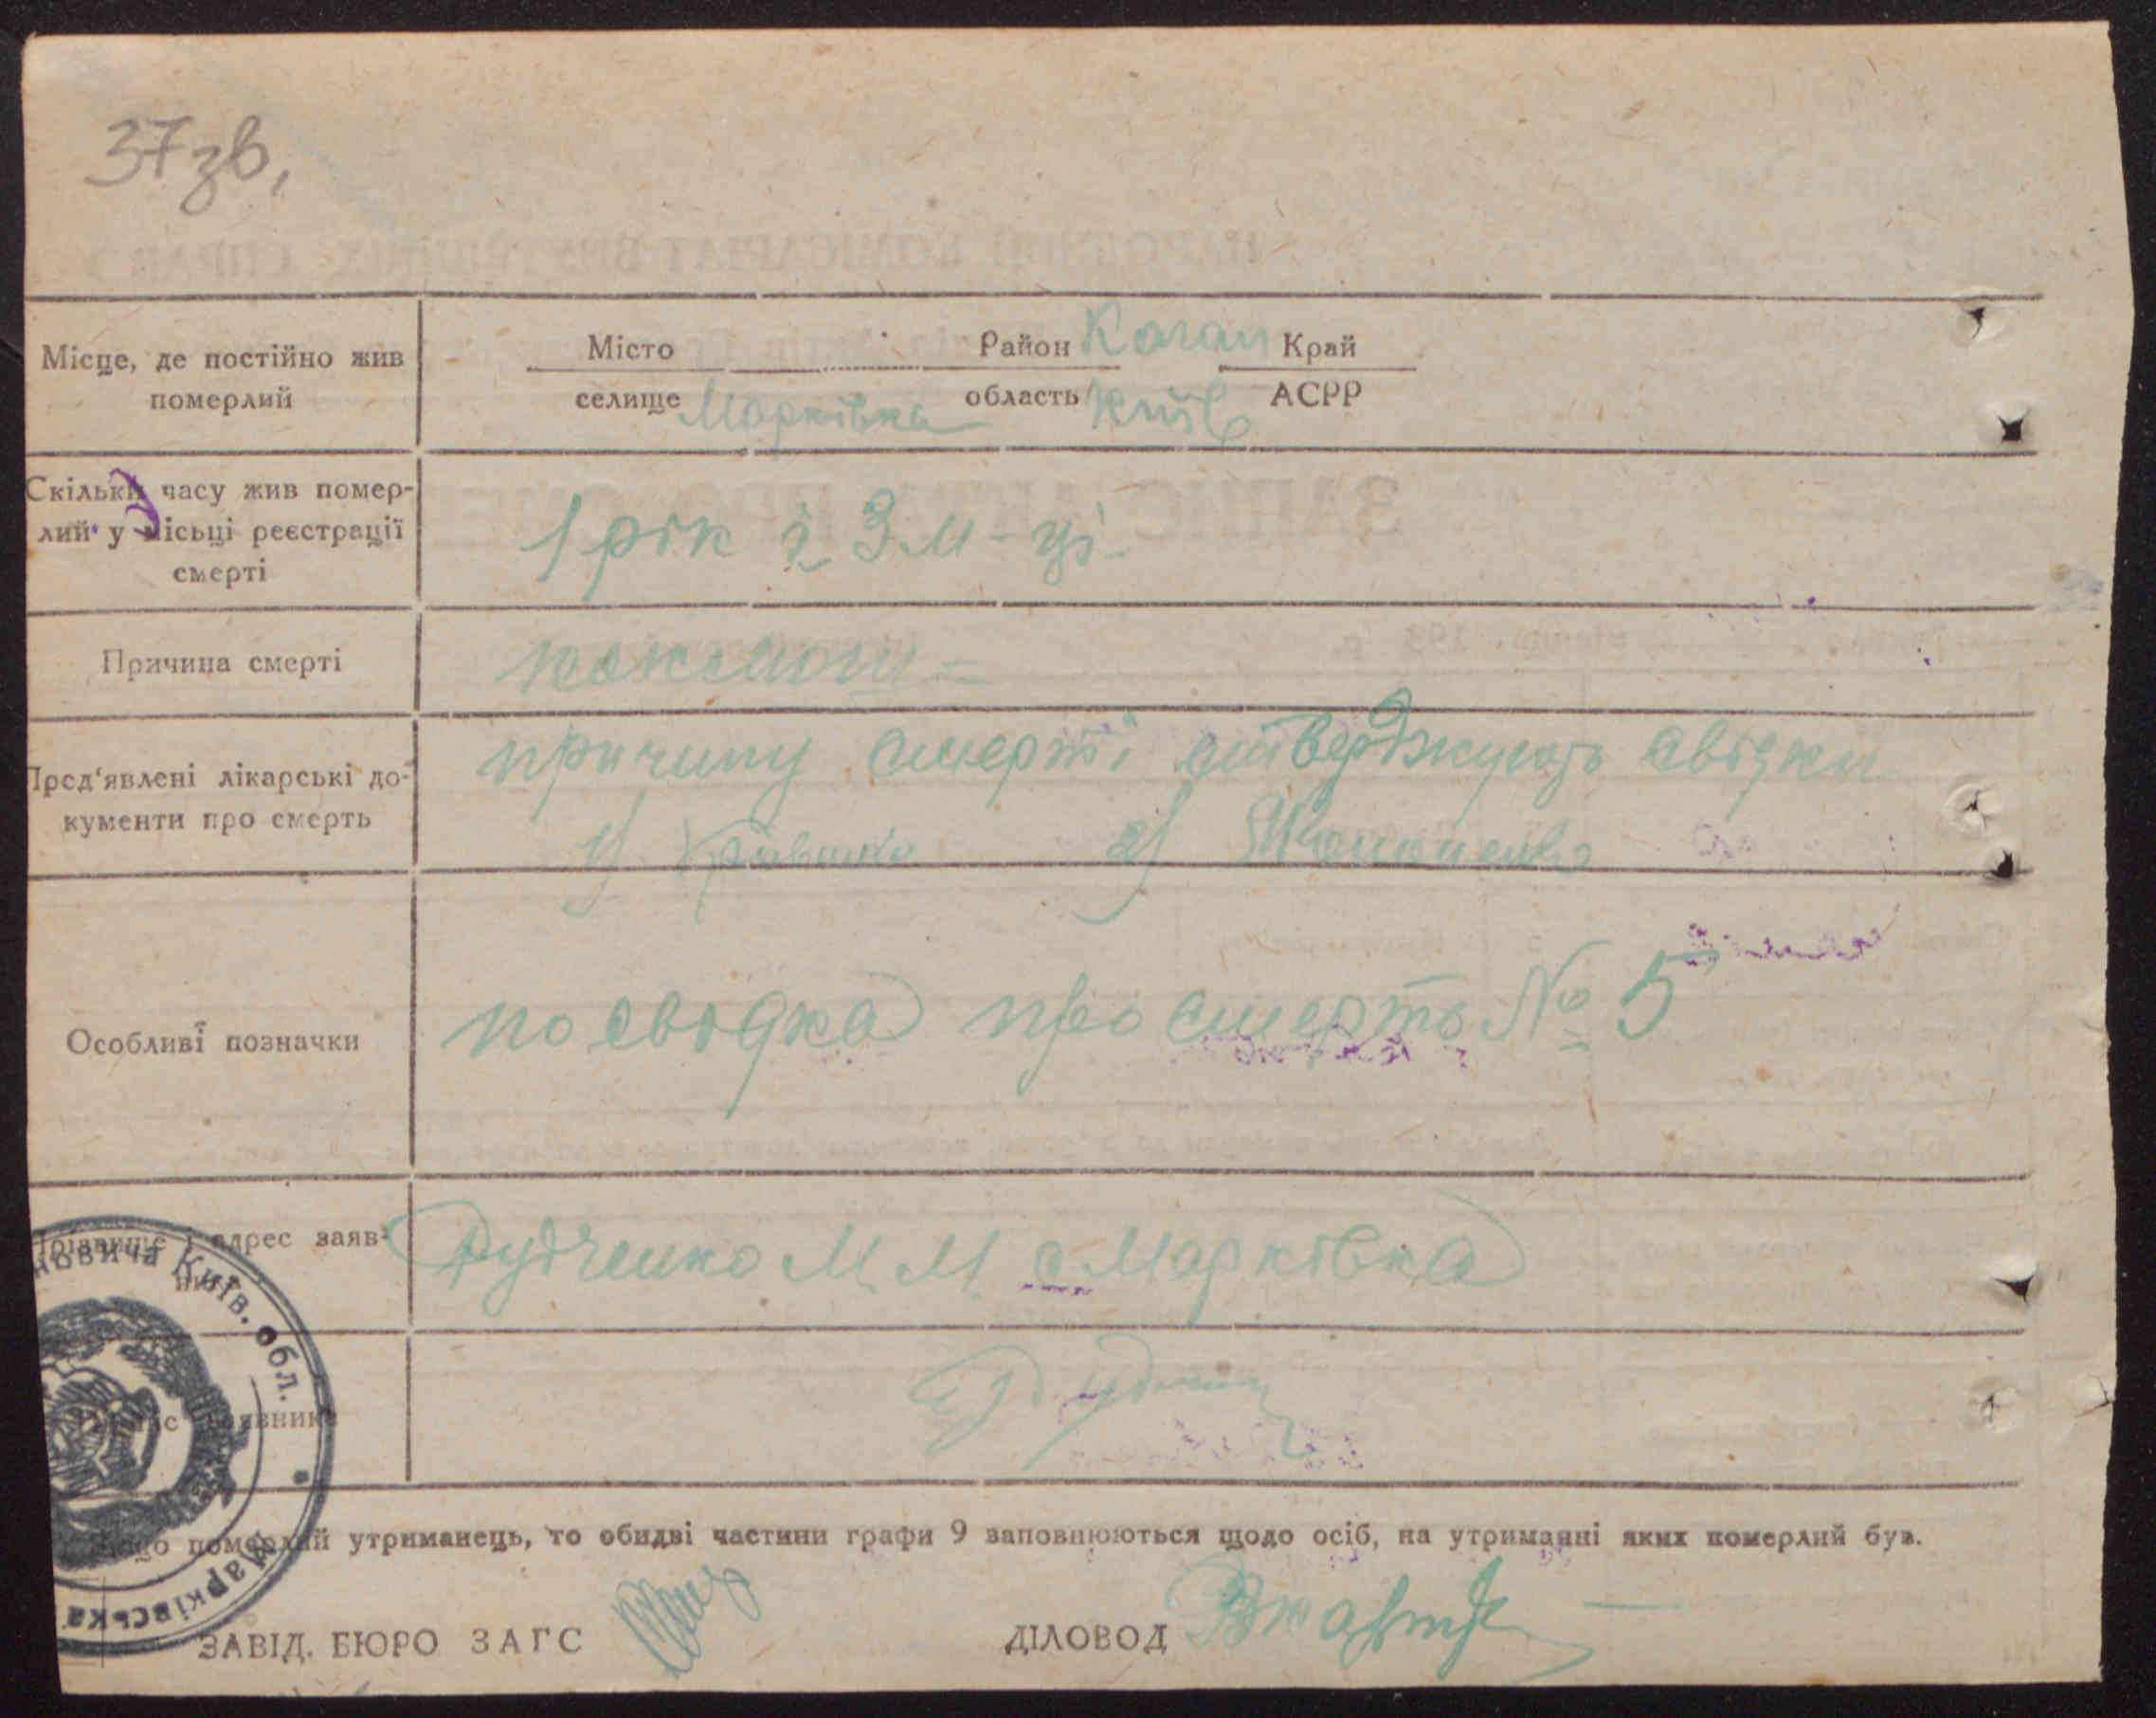 37 зв,
Місце, де постійно жив
померлий
Місто Район Каган Край
селище Марківка область Київ АСРР
Скільки часу жив помер-
лий у місьці реєстрації
смерті
1 рік і 3 м-ці-
Причина смерті
коклюш -
Пред'явлені лікарські до-
кументи про смерть
причину смерті стверджують свідки
1) 2)
Особливі позначки
посвідка про смерть № 5
Прізвище і адрес заяв-
Дудченко М. М. с Марківка
Підпис заявника
Якщо померлий утриманець, то обидві частини графи 9 заповнюються щодо осіб, на утриманні яких померлий був.
ЗАВІД. БЮРО ЗАГС ДІЛОВОД
новича Київ. обл.
Марківська